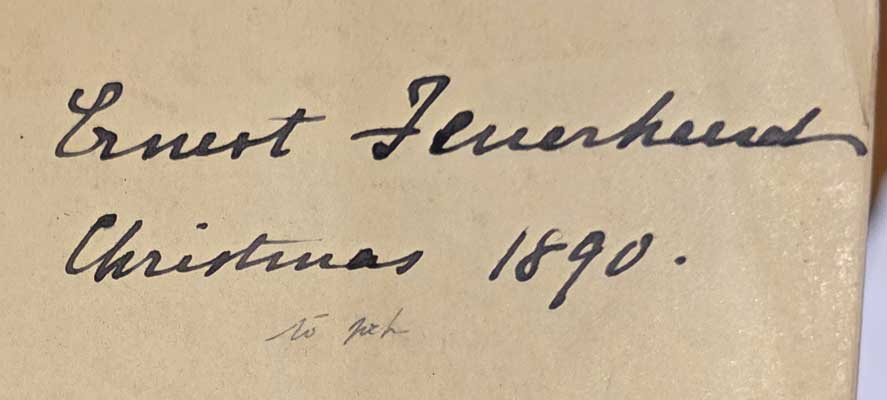 Ernest Feuerheerd
Christmas 1890.